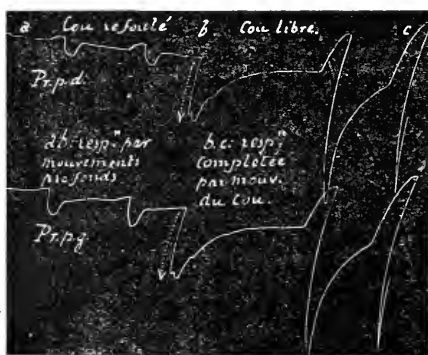 a Cou refoulé b Cou libre. c
Pr.p.d.
ab: resp.ⁿ par
mouvements
profonds
b.c: resp.ⁿ
complétée
par mouv.
du cou.
Pr.p.g.